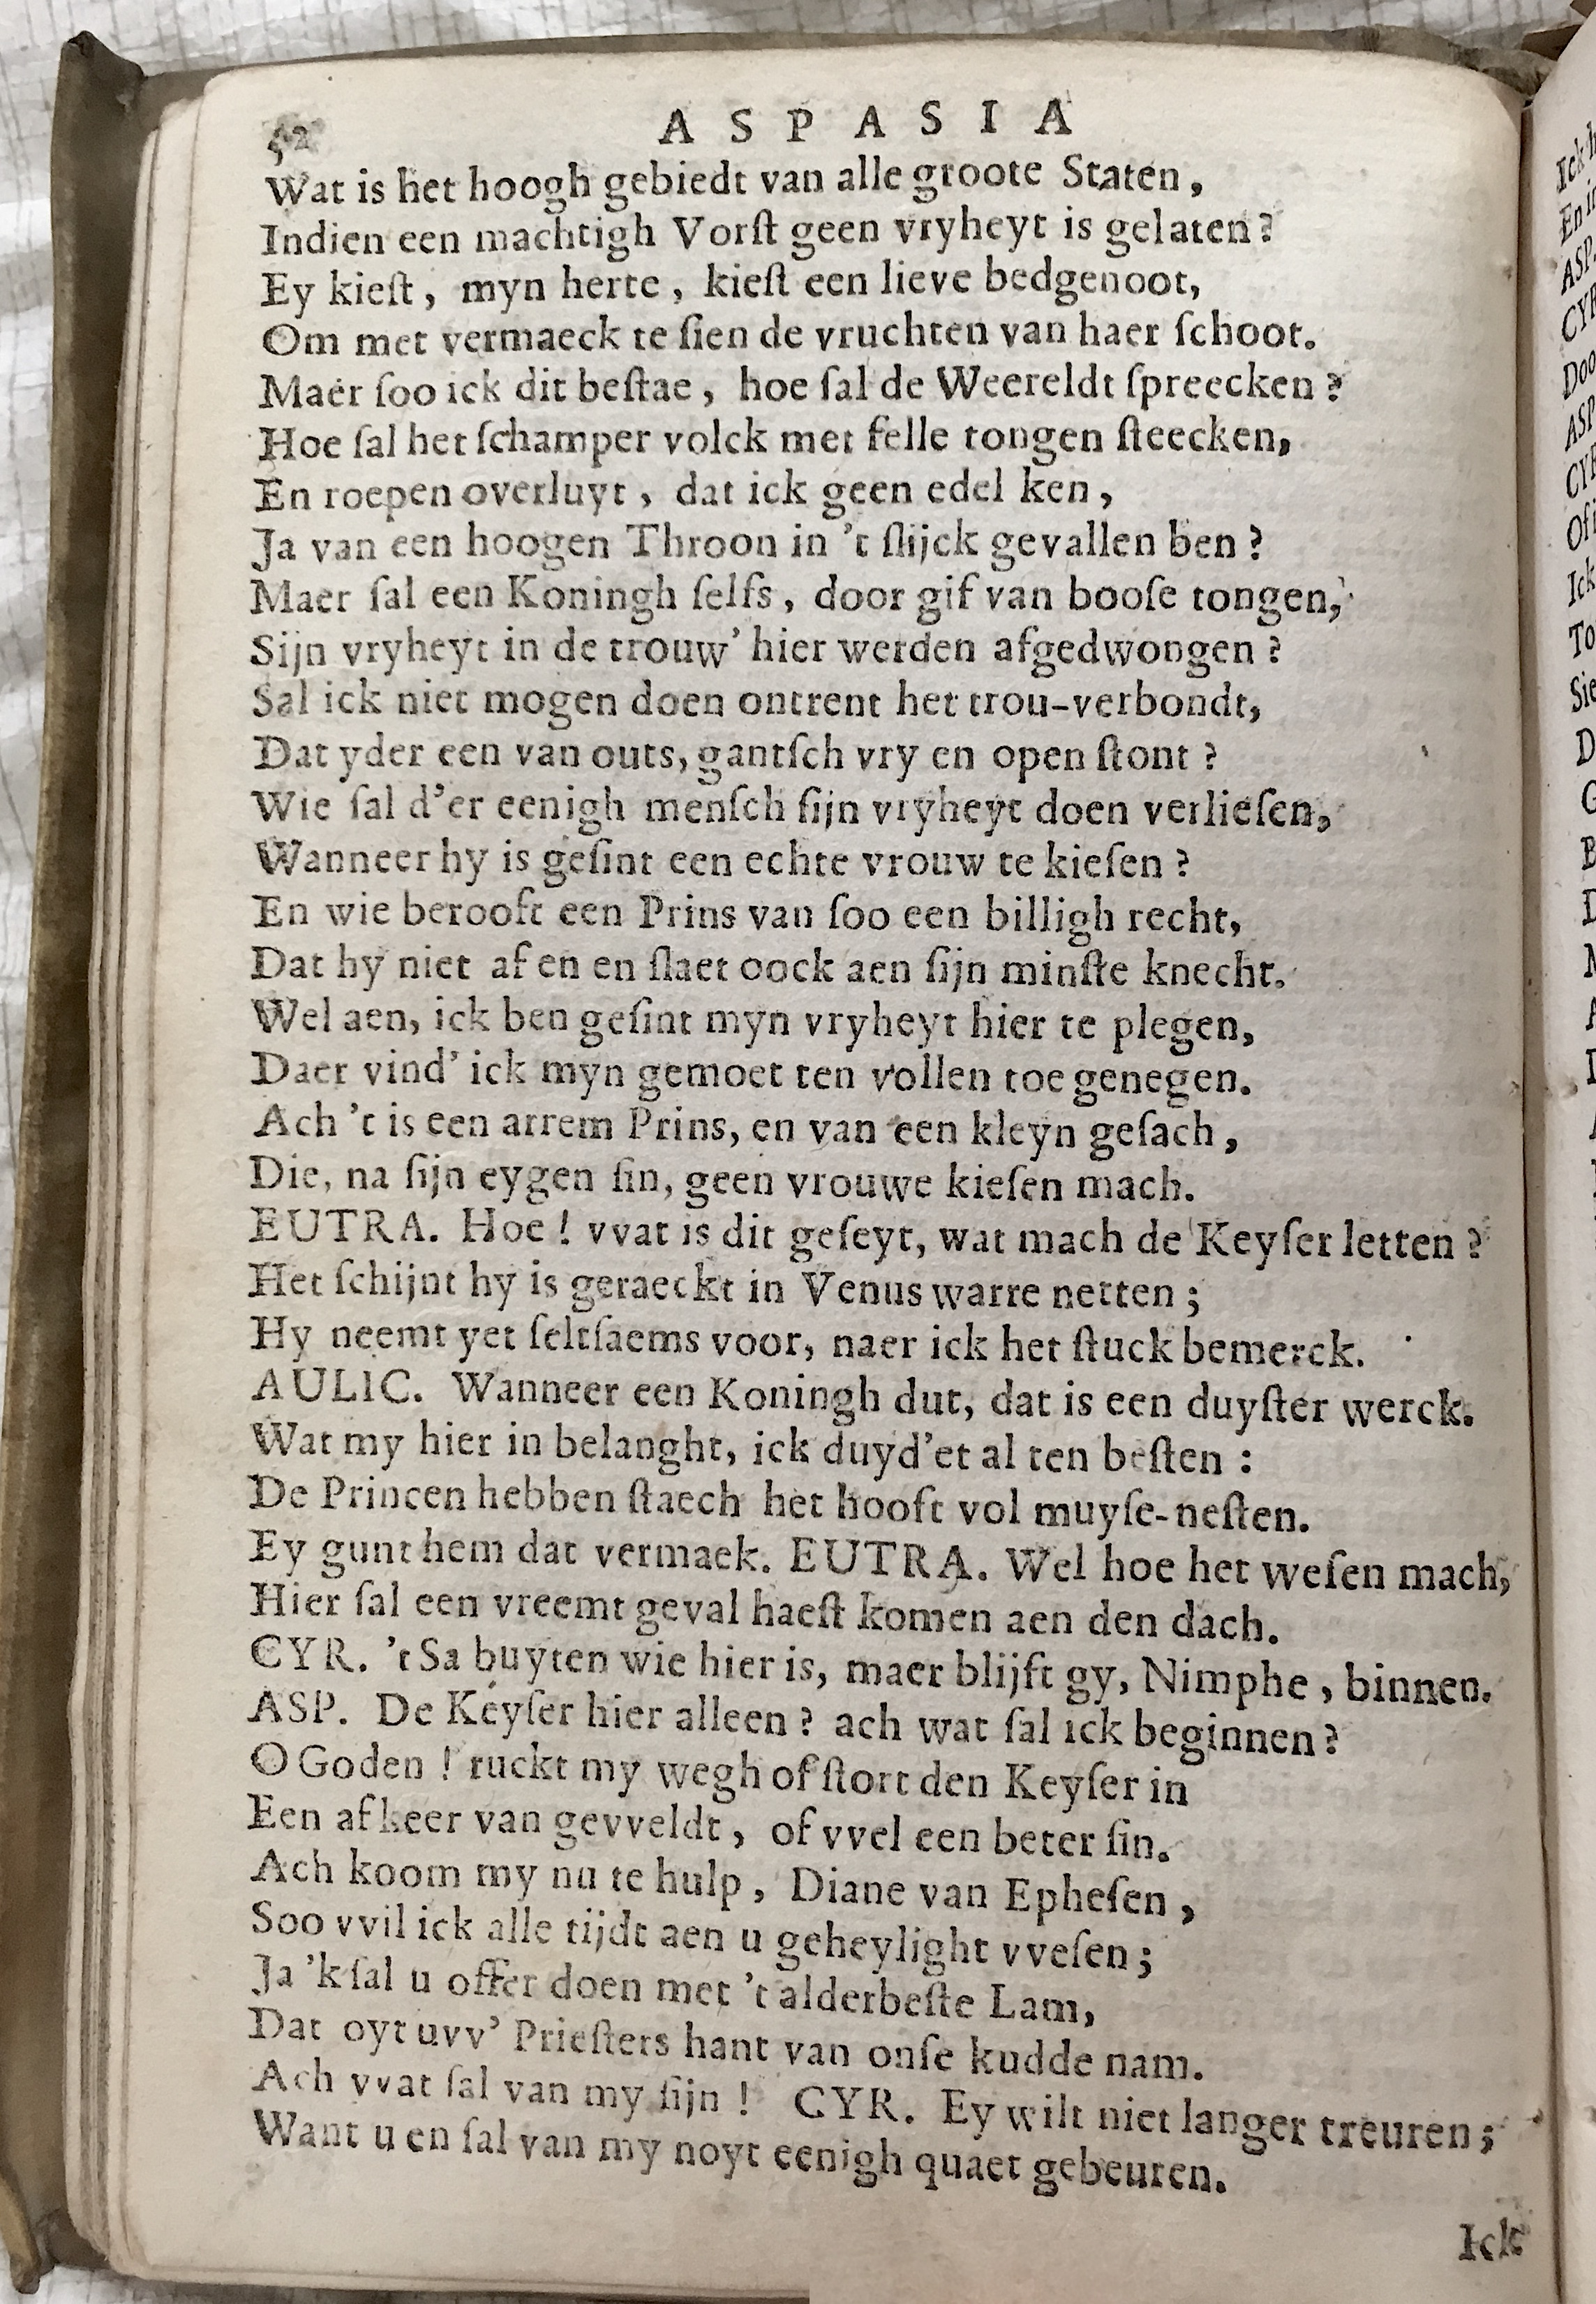 52 ASPASIA
Wat is het hoogh gebiedt van alle groote Staten,
Indien een machtigh Vorſt geen vryheyt is gelaten?
Ey kieſt, myn herte, kieſt een lieve bedgenoot,
Om met vermaeck te ſien de vruchten van haer ſchoot.
Maer ſoo ick dit beſtae, hoe ſal de Weereldt ſpreecken?
Hoe ſal het ſchamper volck met felle tongen ſteecken,
En roepen overluyt, dat ick geen edel ken,
Ja van een hoogen Throon in 't ſlijck gevallen ben?
Maer ſal een Koningh ſelfs, door gif van booſe tongen,
Sijn vryheyt in de trouw' hier werden afgedwongen?
Sal ick niet mogen doen ontrent het trou-verbondt,
Dat yder een van outs, gantſch vry en open ſtont?
Wie ſal d'er eenigh menſch ſijn vryheyt doen verlieſen,
Wanneer hy is geſint een echte vrouw te kieſen?
En wie berooft een Prins van ſoo een billigh recht,
Dat hy niet af en en ſlaet oock aen ſijn minſte knecht.
Wel aen, ick ben geſint myn vryheyt hier te plegen,
Daer vind' ick myn gemoet ten vollen toe genegen.
Ach 't is een arrem Prins, en van een kleyn geſach,
Die, na ſijn eygen ſin, geen vrouwe kieſen mach.
EUTRA. Hoe! vvat is dit geſeyt, wat mach de Keyſer letten?
Het ſchijnt hy is geraeckt in Venus warre netten;
Hy neemt yet ſeltſaems voor, naer ick het ſtuck bemerck.
AULIC. Wanneer een Koningh dut, dat is een duyſter werck.
Wat my hier in belanght, ick duyd'et al ten beſten:
De Princen hebben ſtaech het hooft vol muyſe-neſten.
Ey gunt hem dat vermaek. EUTRA. Wel hoe het weſen mach,
Hier ſal een vreemt geval haeſt komen aen den dach.
CYR. 't Sa buyten wie hier is, maer blijft gy, Nimphe, binnen.
ASP. De Keyſer hier alleen? ach wat ſal ick beginnen?
O Goden! ruckt my wegh of ſtort den Keyſer in
Een afkeer van gevveldt, of vvel een beter ſin.
Ach koom my nu te hulp, Diane van Epheſen,
Soo vvil ick alle tijdt aen u geheylight vveſen;
Ja 'k ſal u offer doen met 't alderbeſte Lam,
Dat oyt uvv' Prieſters hant van onſe kudde nam.
Ach vvat ſal van my ſijn! CYR. Ey wilt niet langer treuren;
Want u en ſal van my noyt eenigh quaet gebeuren.
Ick